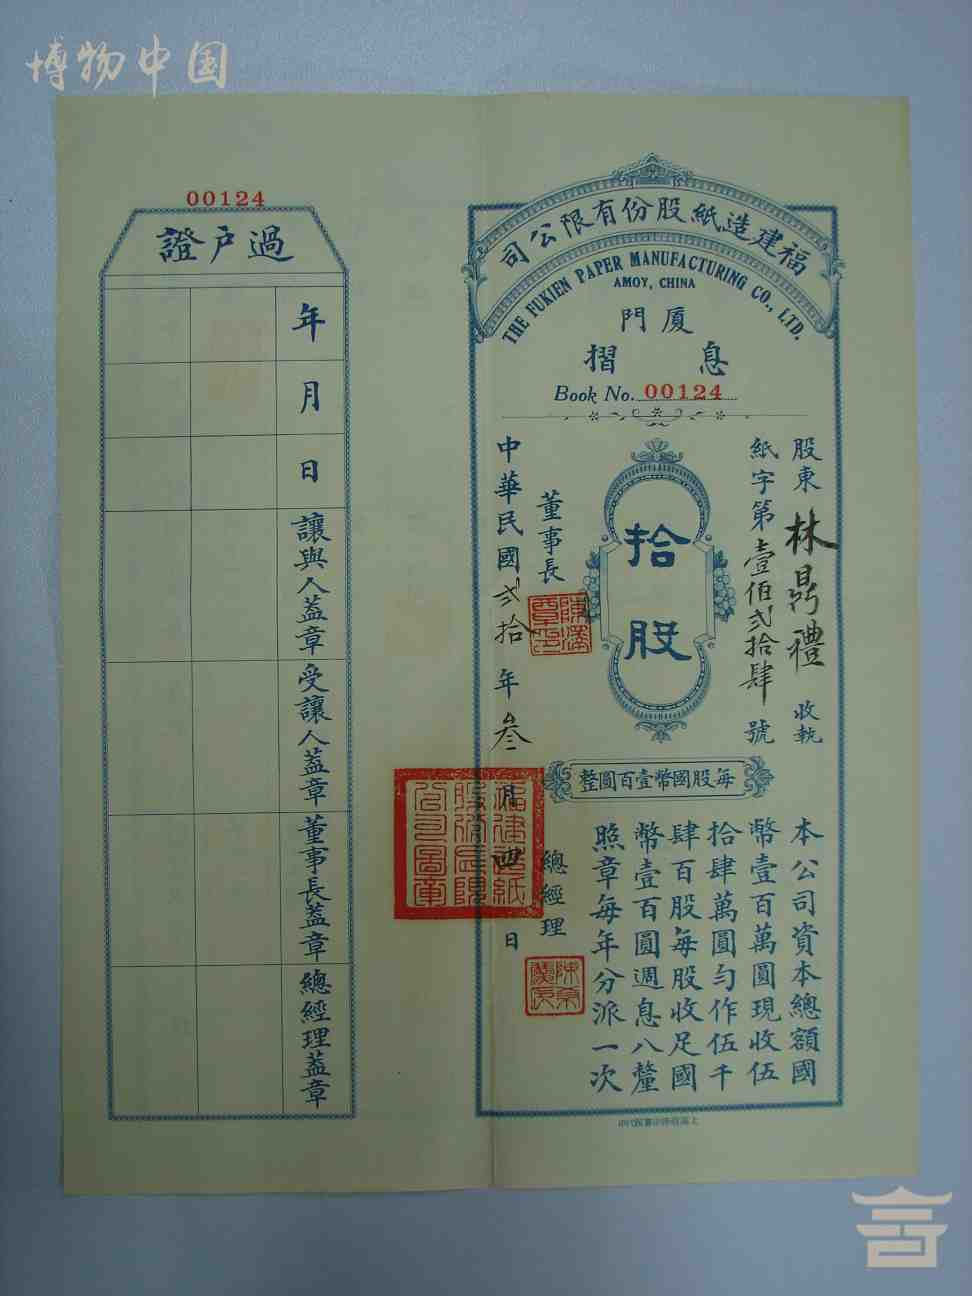 博物中国
00124
過戶證
年
月
日
讓與人蓋章
受讓人蓋章
董事長蓋章
總經理蓋章
福建造紙股份有限公司
THE FUKIEN PAPER MANUFACTURING CO., LTD.
AMOY, CHINA
厦門
息摺
Book No. 00124
股東林鼎禮收執
紙字第壹佰弍拾肆號
拾股
每股國幣壹百圓整
本公司資本總額國
幣壹百萬圓現收伍
拾肆萬圓勻作伍千
肆百股每股收足國
幣壹百圓週息八釐
照章每年分派一次
董事長
總經理
中華民國弍拾年叁月四日
福建造紙
股份有限
公司圖章